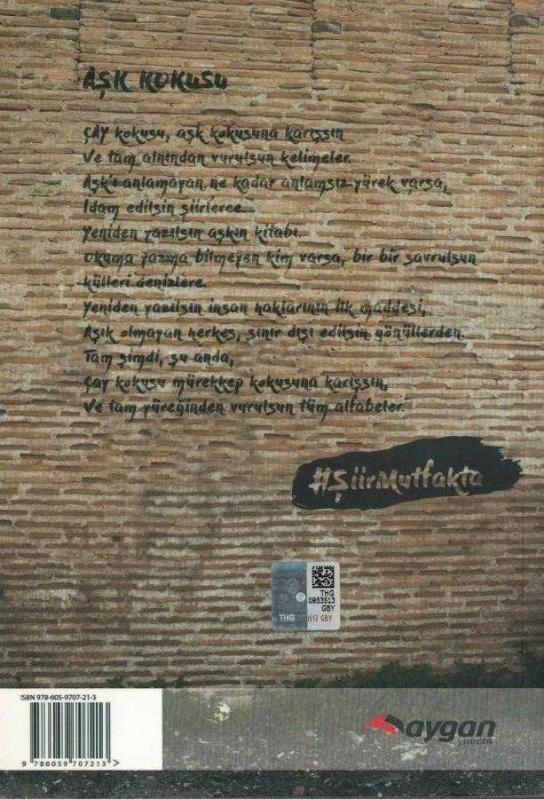 AŞK KOKUSU
ÇAY kokusu, aşk kokusuna karışsın
Ve tam alnından vurulsun kelimeler.
Aşk'ı anlamayan ne kadar anlamsız yürek varsa,
İdam edilsin şiirlerce...
Yeniden yazılsın aşkın kitabı.
Okuma yazma bilmeyen kim varsa, bir bir savrulsun
külleri denizlere.
Yeniden yazılsın insan haklarının ilk maddesi,
Aşık olmayan herkes, sınır dışı edilsin gönüllerden.
Tam şimdi, şu anda,
Çay kokusu mürekkep kokusuna karışsın,
Ve tam yüreğinden vurulsun tüm alfabeler.
#ŞiirMutfakta
THG
0953513
GBY
THG
3513 GBY
ISBN 978-605-9707-21-3
9 786059 707213 >
aygan
yayıncılık